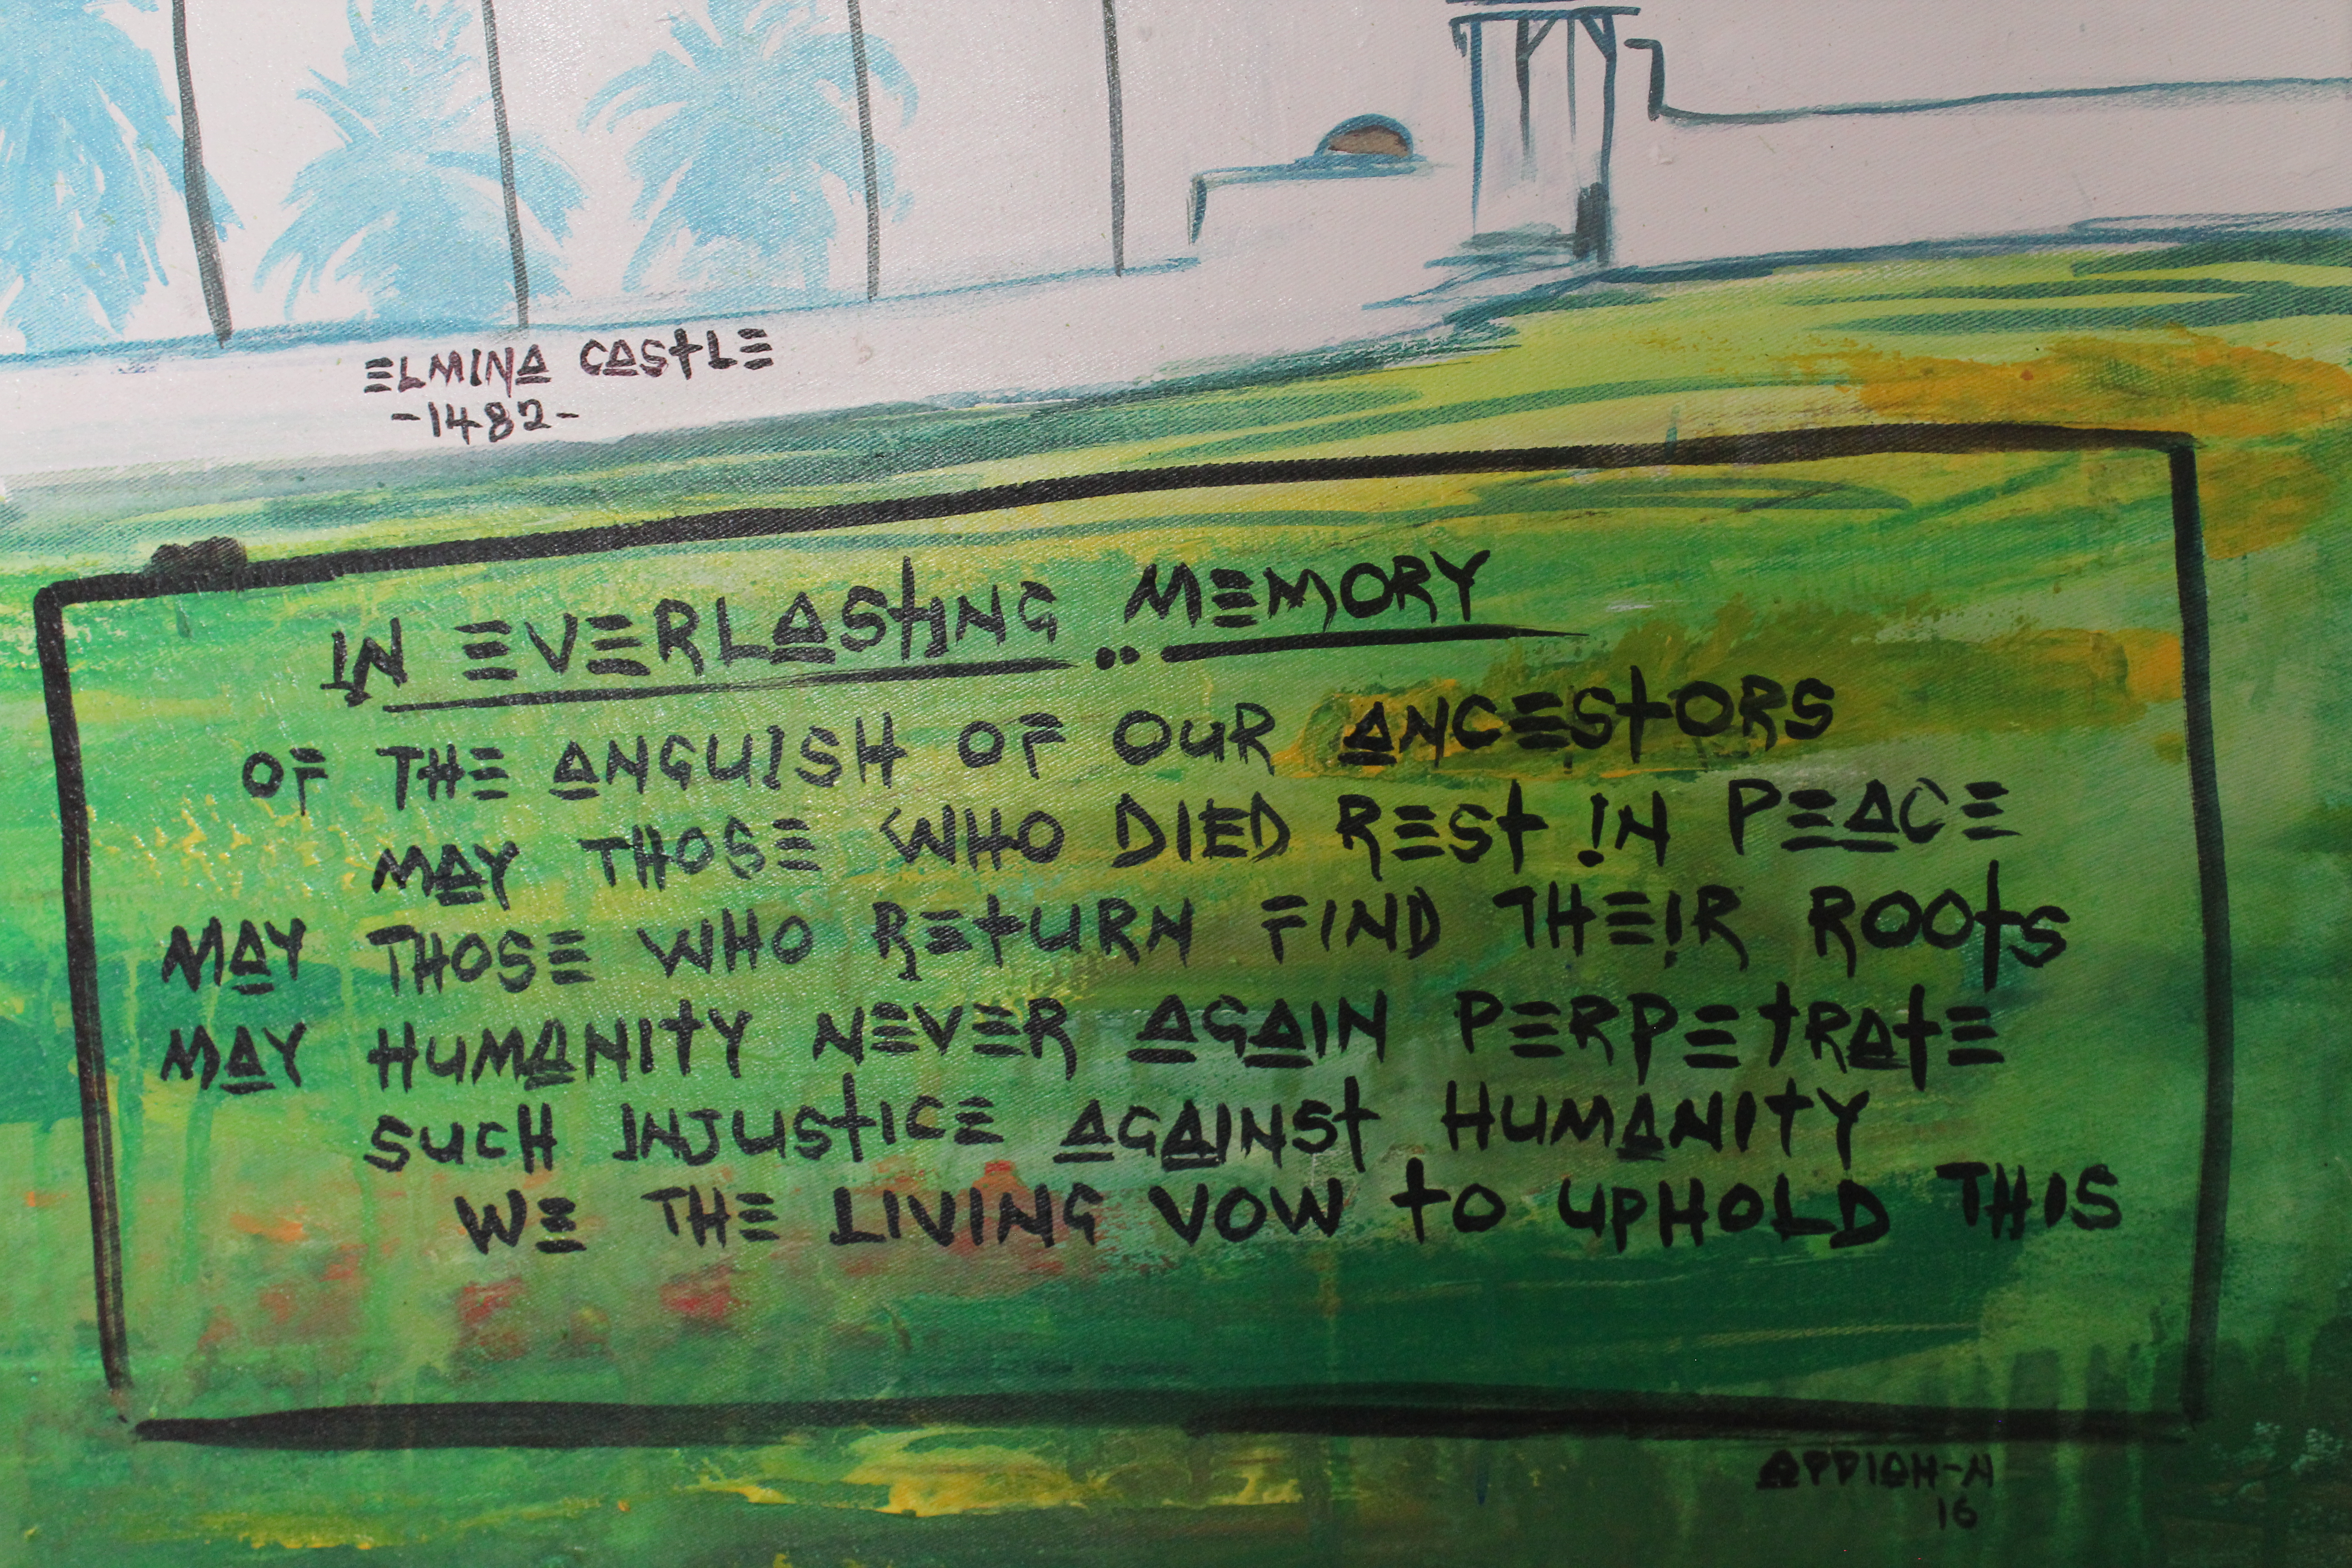 ELMINA CASTLE
-1482-
IN EVERLASTING MEMORY
OF THE ANGUISH OF OUR ANCESTORS
MAY THOSE WHO DIED REST IN PEACE
MAY THOSE WHO RETURN FIND THEIR ROOTS
MAY HUMANITY NEVER AGAIN PERPETRATE
SUCH INJUSTICE AGAINST HUMANITY
WE THE LIVING VOW TO UPHOLD THIS
APPIAH-N
16